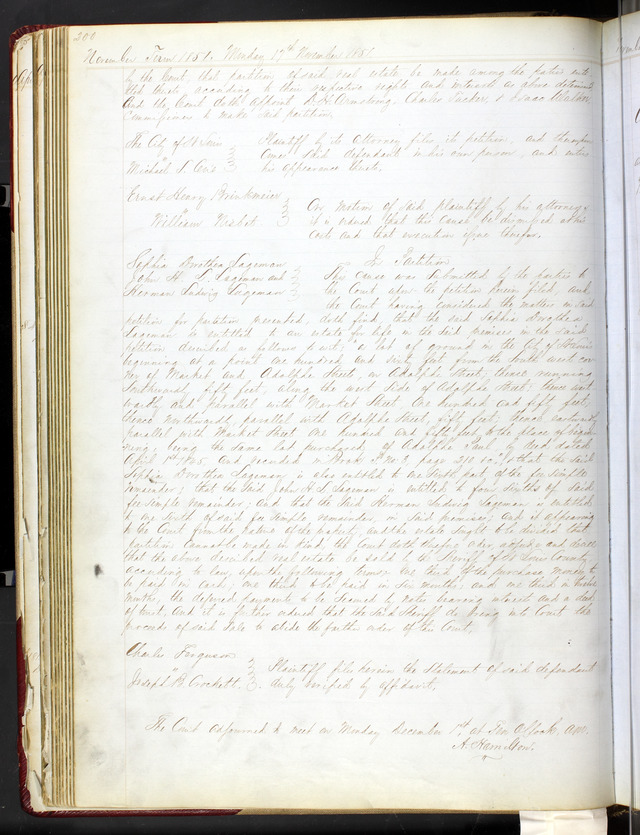 200
November Term 1851. Monday 17th November 1851
by the Court that partition of said real estate be made among the parties
that thereto according to their respective rights and interests as above determined
And the Court doth appoint D. H. Armstrong, Charles Tucker, & Isaac Walker
Commissioners to make said partition.
The City of St Louis } Plaintiff by its attorney files its petition, and thereupon
vs } comes said defendant in his own person, and enters
Michael S. Cerre } his appearance thereto.
Ernst Henry Brinkmeier
vs } On motion of said plaintiff by his attorney
William Nisbet } it is ordered that this cause be dismissed at his
costs and that execution issue therefor.
Sophia Dorothea Lageman } In Partition
John H. L. Lageman and } This cause was submitted by the parties to
Herman Ludwig Lageman } the Court upon the petition herein filed, and
the Court having considered the matters in said
petition for partition presented, doth find that the said Sophia Dorothea
Lageman is entitled to an estate for life in the said premises in the said
petition described as follows to wit; a lot of ground in the City of St Louis
beginning at a point one hundred and feet from the South west cor
ner of Market and Adolph Streets, on Adolph Street, thence running
Southwardly fifty feet, along the west side of Adolph Street; thence west
wardly and parallel with Market Street one hundred and fifty feet;
thence northwardly parallel with Adolph Street, fifty feet; thence eastwardly
parallel with Market Street one hundred and fifty feet to the place of begin
ning; being the same lot purchased of Adolph Paul by deed dated
April 1st 1845 and recorded in Book No 3 page 311 that the said
Sophia Dorothea Lageman is also entitled to one sixth part of the fee simple
remainder; that the said John H. L. Lageman is entitled to four sixths of said
fee simple remainder, and that the said Herman Ludwig Lageman is entitled
to one sixth of said fee simple remainder in said premises; and it appearing
to the Court from the nature of the property and the estate sought to be divided that
partition cannot be made in kind the Court doth therefore order adjudge and decree
that the above described real estate be sold by the Sheriff of St Louis County
according to law upon the following terms: One third of the purchase money to
be paid in cash, one third to be paid in six months, and one third in twelve
months, the deferred payments to be secured by notes bearing interest and a deed
of trust. And it is further ordered that the said Sheriff do bring into Court the
proceeds of said sale to abide the further order of this Court.
Charles Ferguson
vs } Plaintiff files herein the statement of said defendant
Joseph B. Crockett. } duly verified by affidavit.
The Court adjourned to meet on Monday December 1st at Ten O'Clock, A.M.
A. Hamilton.